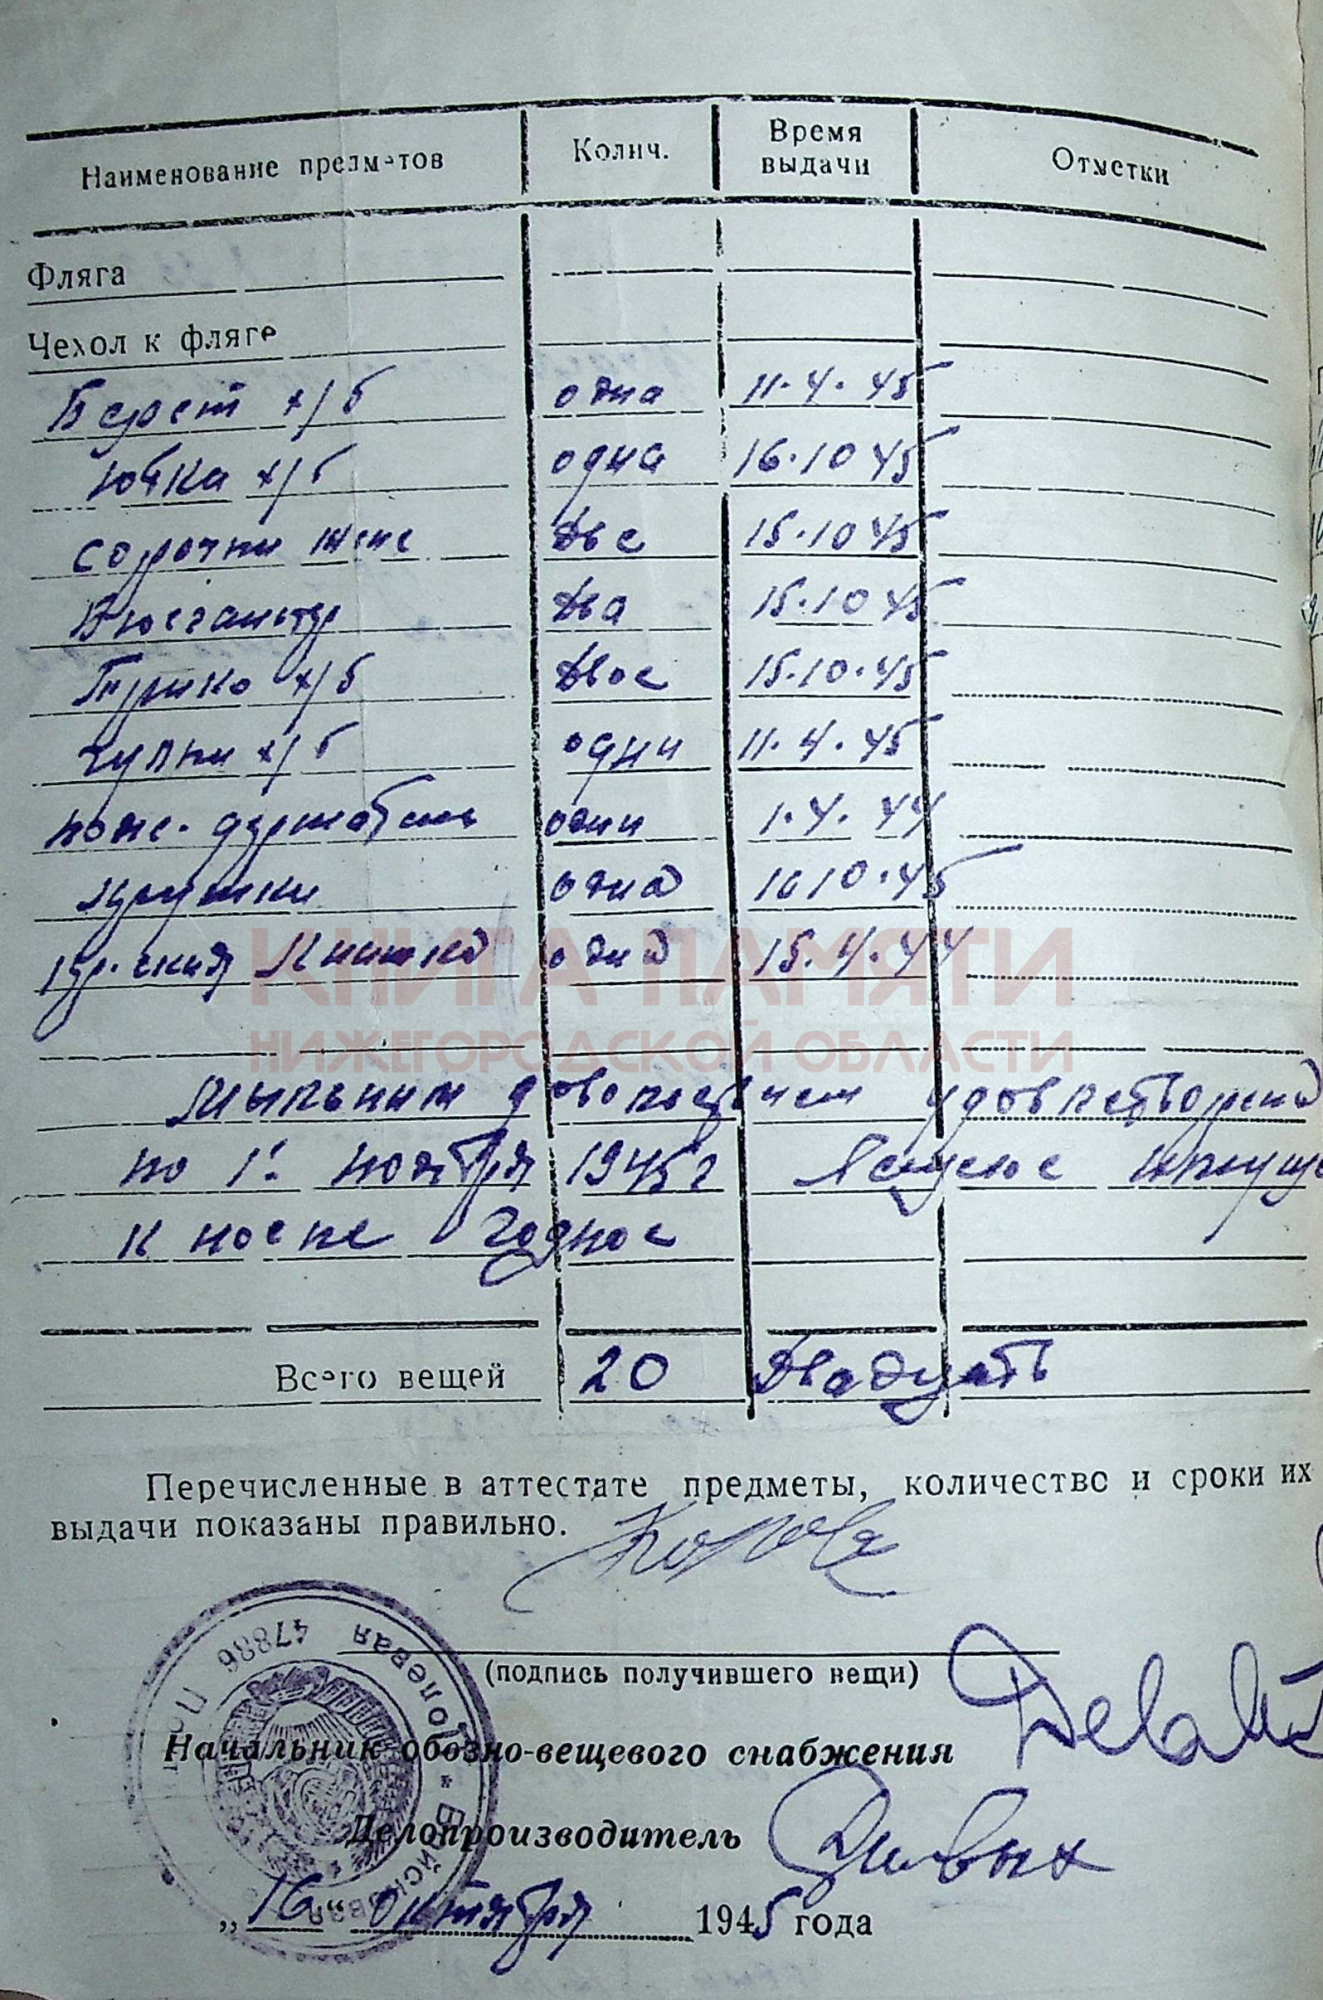 Наименование предметов Колич. Время выдачи Отметки
Фляга
Чехол к фляге
Берет х/б одна 11.4.45
Юбка х/б одна 16.10 45
Сорочки женс две 15.10 45
Бюсгальтер два 15.10 45
Трико х/б двое 15.10.45
Чулки х/б одни 11.4.45
пояс. держатель один 1.4.44
одна 1610.45
книжка одна 15.4.44
КНИГА ПАМЯТИ
НИЖЕГОРОДСКОЙ ОБЛАСТИ
Мыльным довольствием удовлетворена
по 1. ноября 1945 г
к носке годное
Всего вещей 20 Двадцать
Перечисленные в аттестате предметы, количество и сроки их
выдачи показаны правильно.
(подпись получившего вещи)
Начальник обозно-вещевого снабжения
Делопроизводитель
„16“ октября 1945 года
Войсковая * Полевая 47886